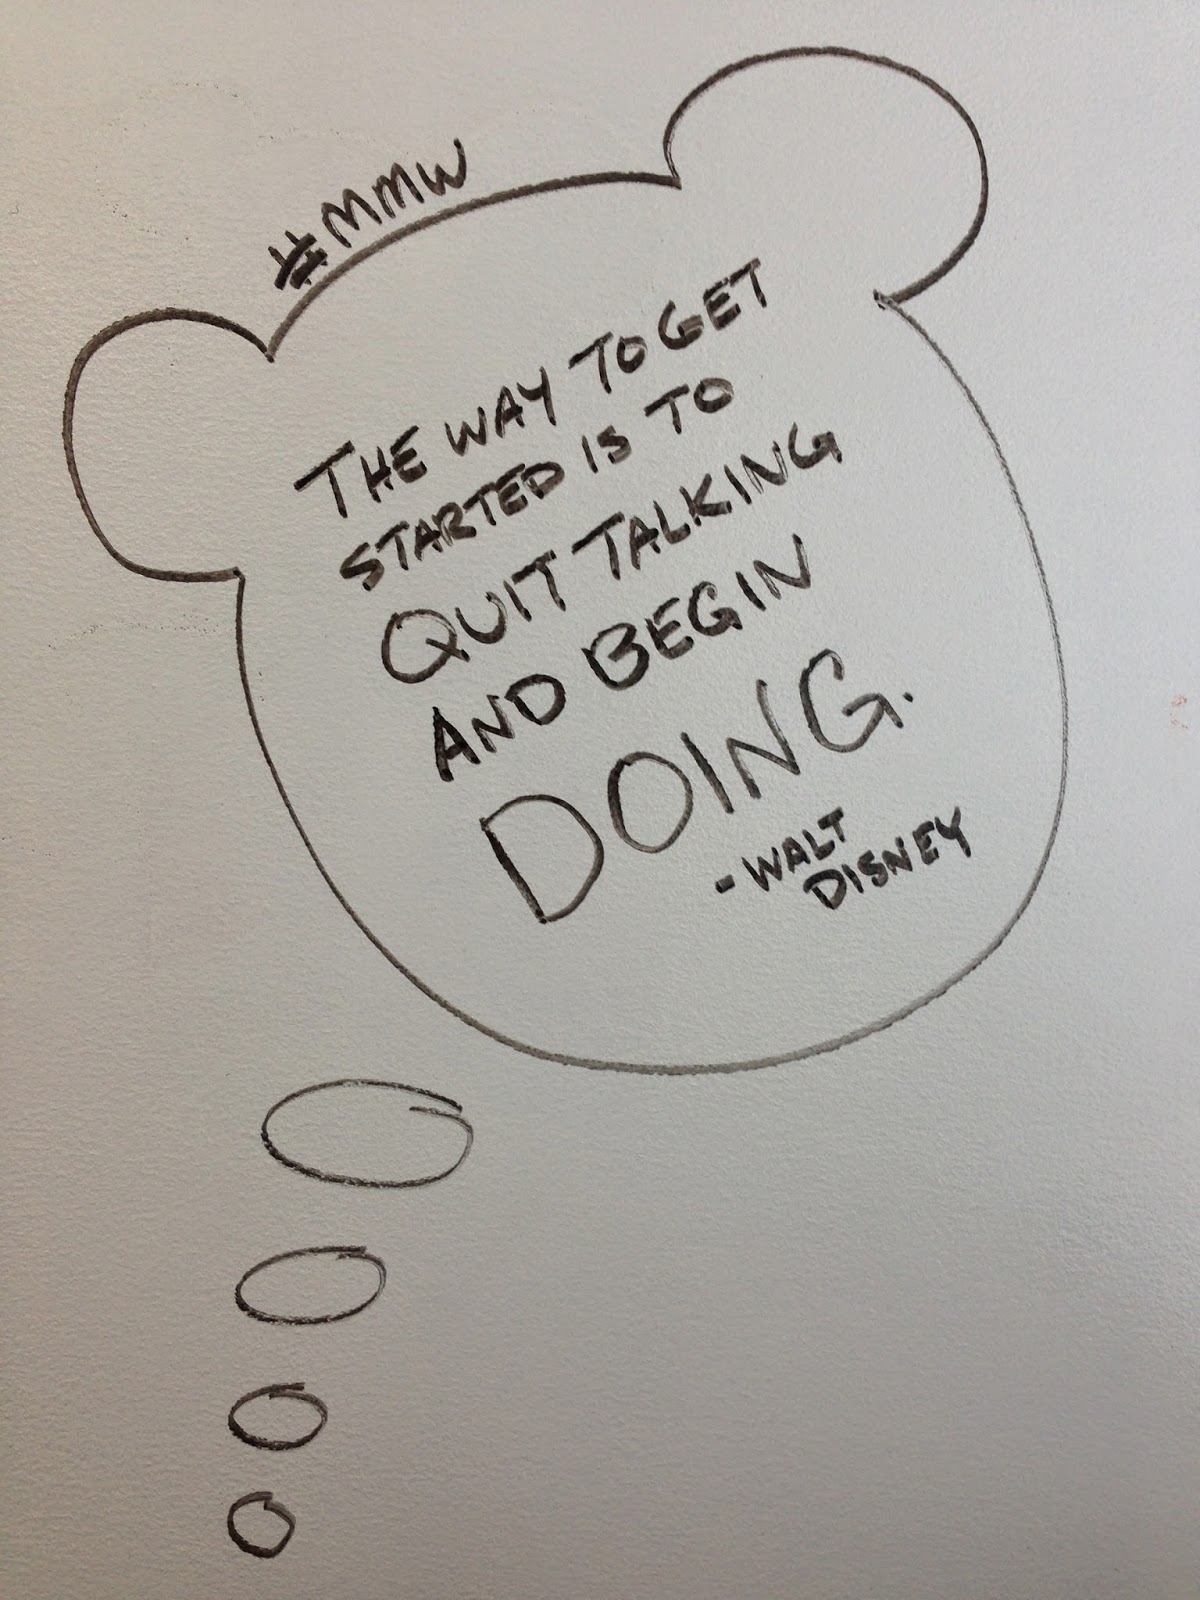 #MMW
THE WAY TO GET
STARTED IS TO
QUIT TALKING
AND BEGIN
DOING.
- WALT
DISNEY